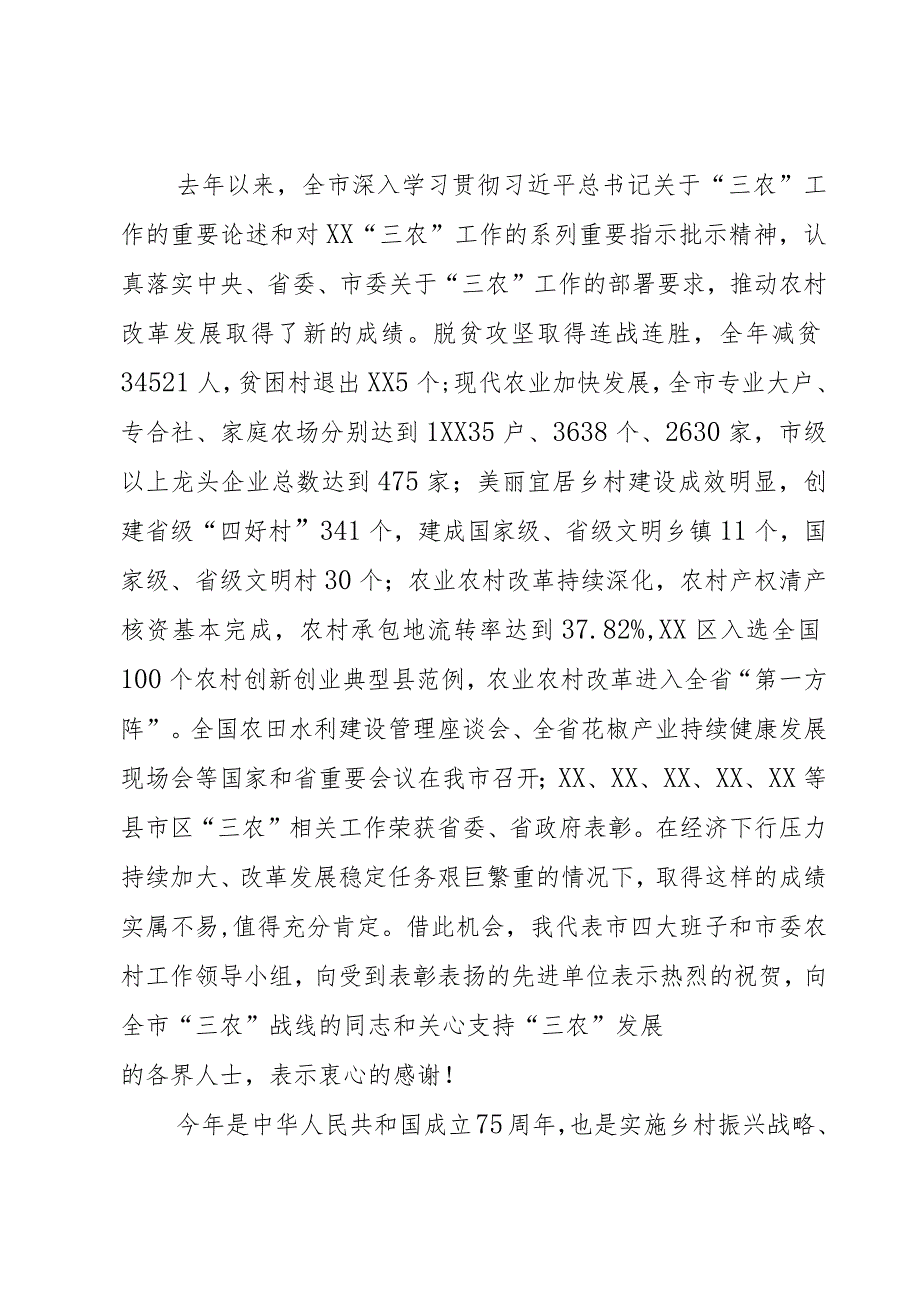 去年以来，全市深入学习贯彻习近平总书记关于“三农”工
作的重要论述和对XX“三农”工作的系列重要指示批示精神，认
真落实中央、省委、市委关于“三农”工作的部署要求，推动农村
改革发展取得了新的成绩。脱贫攻坚取得连战连胜，全年减贫
34521人,贫困村退出XX5个;现代农业加快发展,全市专业大户、
专合社、家庭农场分别达到1XX35户、3638个、2630家，市级
以上龙头企业总数达到475家；美丽宜居乡村建设成效明显，创
建省级“四好村”341个，建成国家级、省级文明乡镇11个，国
家级、省级文明村30个；农业农村改革持续深化，农村产权清产
核资基本完成，农村承包地流转率达到37.82%,XX区入选全国
100个农村创新创业典型县范例，农业农村改革进入全省“第一方
阵”。全国农田水利建设管理座谈会、全省花椒产业持续健康发展
现场会等国家和省重要会议在我市召开；XX、XX、XX、XX、XX等
县市区“三农”相关工作荣获省委、省政府表彰。在经济下行压力
持续加大、改革发展稳定任务艰巨繁重的情况下，取得这样的成绩
实属不易,值得充分肯定。借此机会，我代表市四大班子和市委农
村工作领导小组，向受到表彰表扬的先进单位表示热烈的祝贺，向
全市“三农”战线的同志和关心支持“三农”发展
的各界人士，表示衷心的感谢！
今年是中华人民共和国成立75周年,也是实施乡村振兴战略、